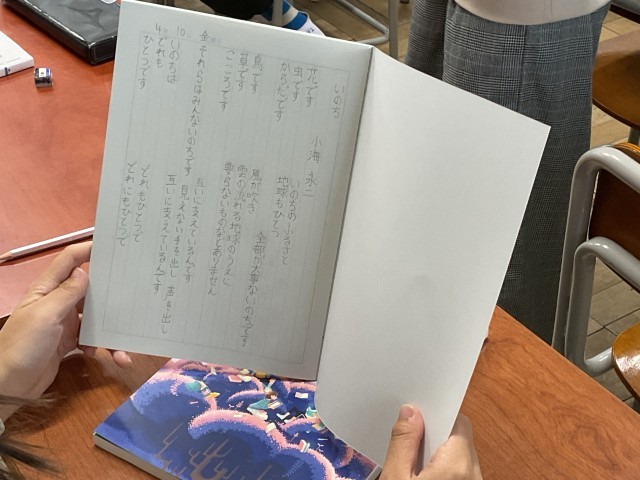 いのち
小海 永二
花です
虫です
からだです
鳥です
草です
こころです
それらはみんないのちです
いのちは
どれも
ひとつです
いのちのふるさと
地球もひとつ
風が吹き
雲の流れる地球のうえに
要らないものなどありません
全部が大事ないのちです
互いに支えているんです
見えない手を出し 声を出し
互いに支えているんです
どれもひとつで
どれにもひとつで